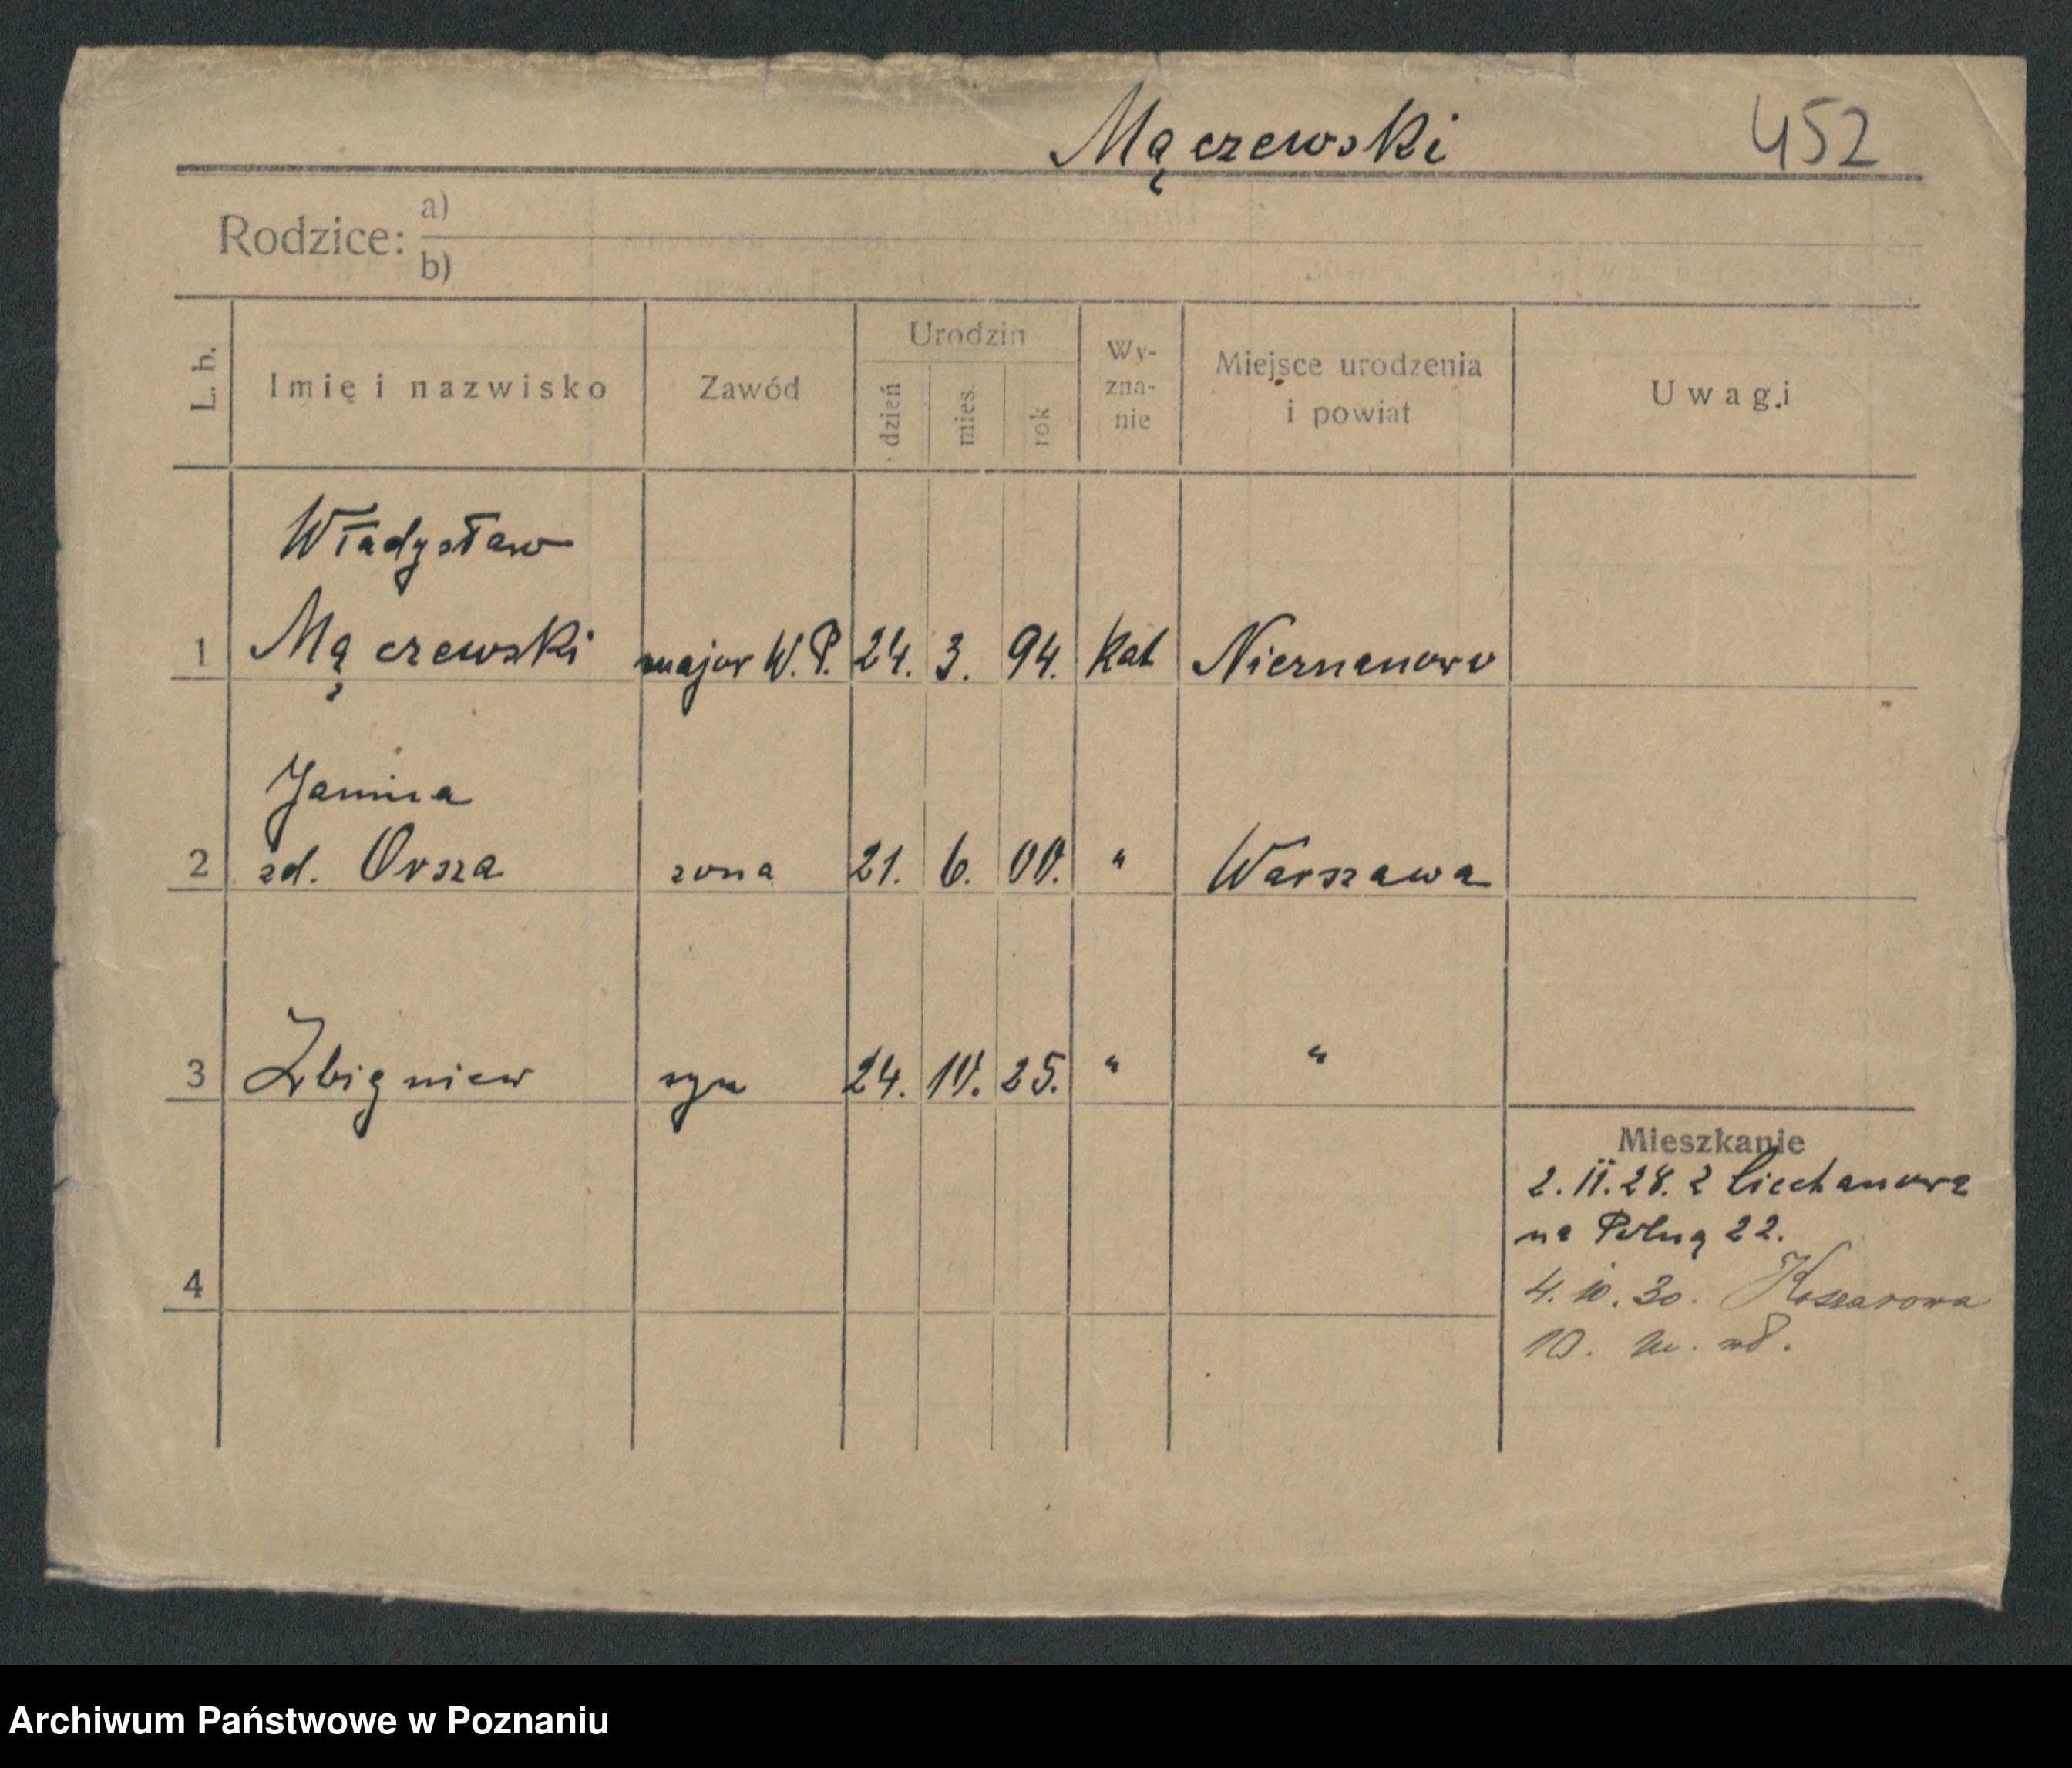 Mączewski 452
Rodzice: a)
b)
L. b. Imię i nazwisko Zawód Urodzin dzień mies. rok Wy-zna-nie Miejsce urodzenia i powiat Uwagi
Władysław
1 Mączewski major W.P. 24. 3. 94. kat Niernanowo
Janina
2 zd. Orsza zona 21. 6. 00. " Warszawa
3 Zbigniew syn 24. 10. 25. " "
Mieszkanie
2. II. 28. z Ciechanowa
na Polną 22.
4
4. 10. 30. Koszarowa
10. m. wł.
Archiwum Państwowe w Poznaniu